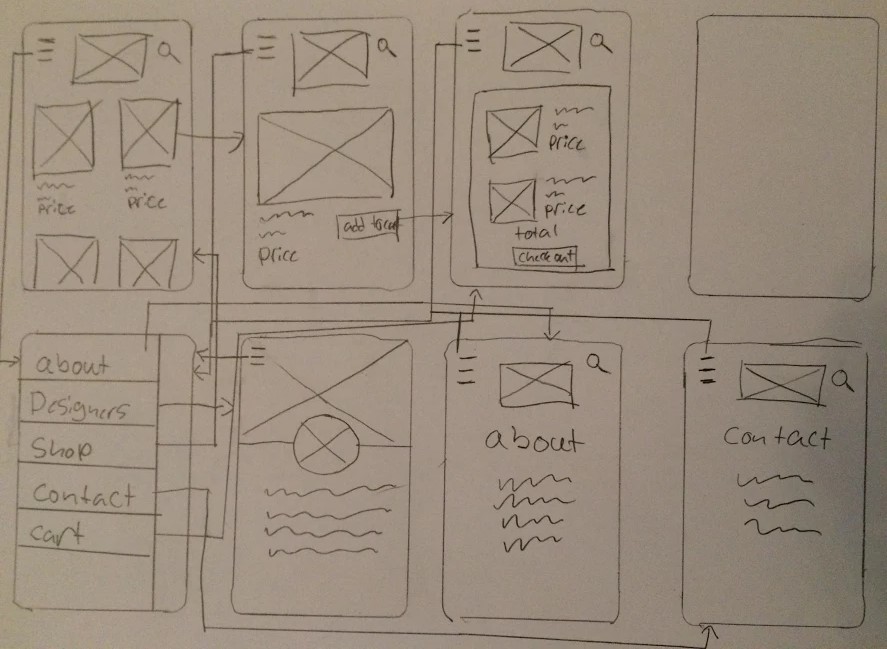 price
price
price
add to cart
price
price
total
check out
about
Designers
Shop
Contact
Cart
about
Contact